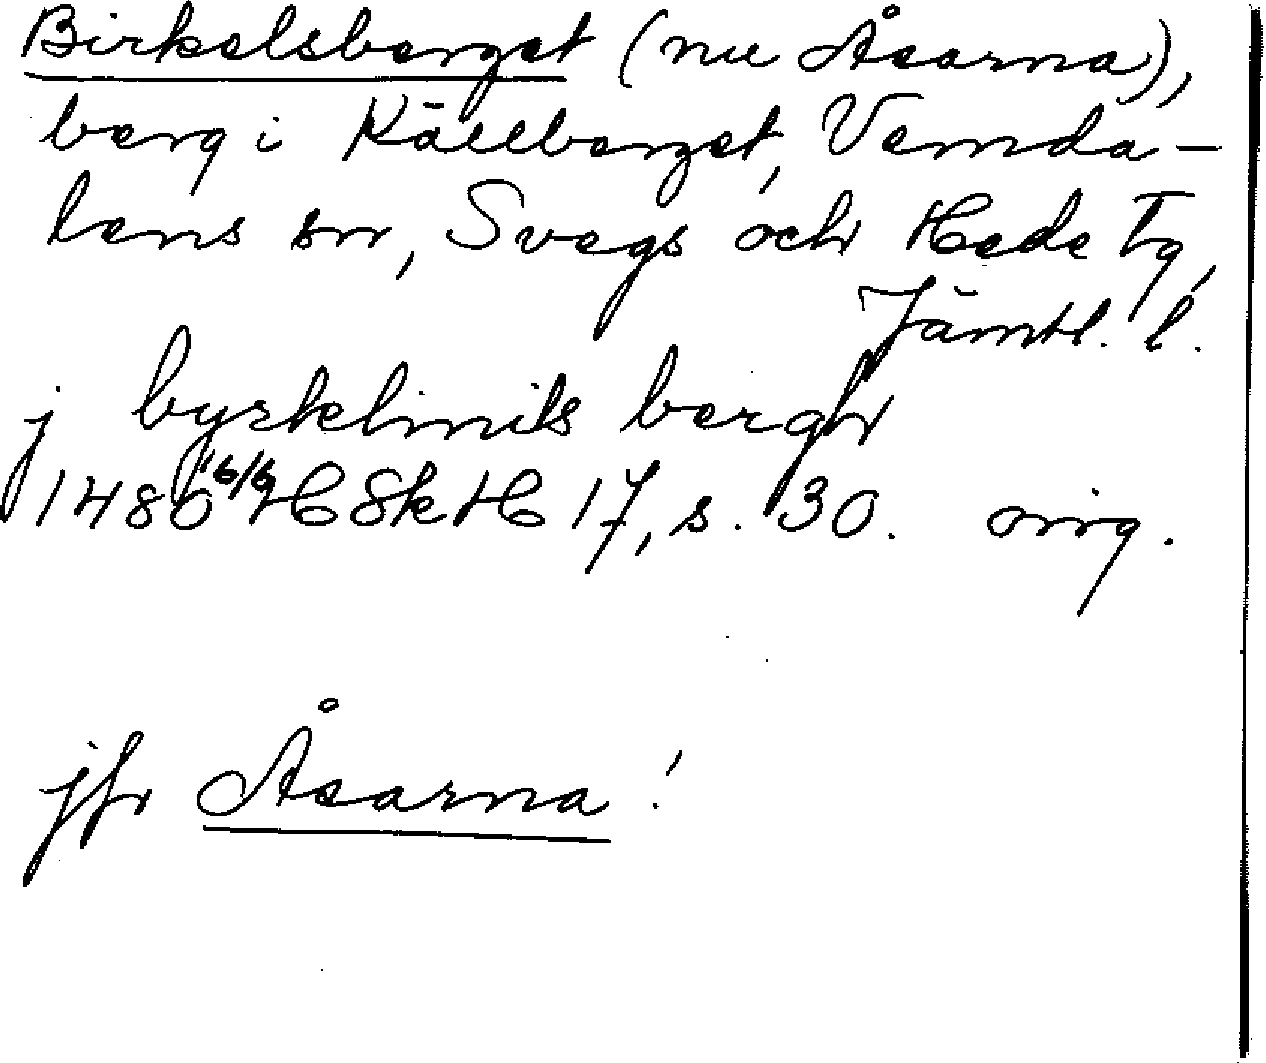 Birkelsberget (nu Åsarna),
berg i Källberget, Vemda-
lens sn, Svegs och Hede Tg,
Jämtl. l.
j byrklinils bergh
1480 16/6 HSkH 17, s. 30. orig.
jfr Åsarna!